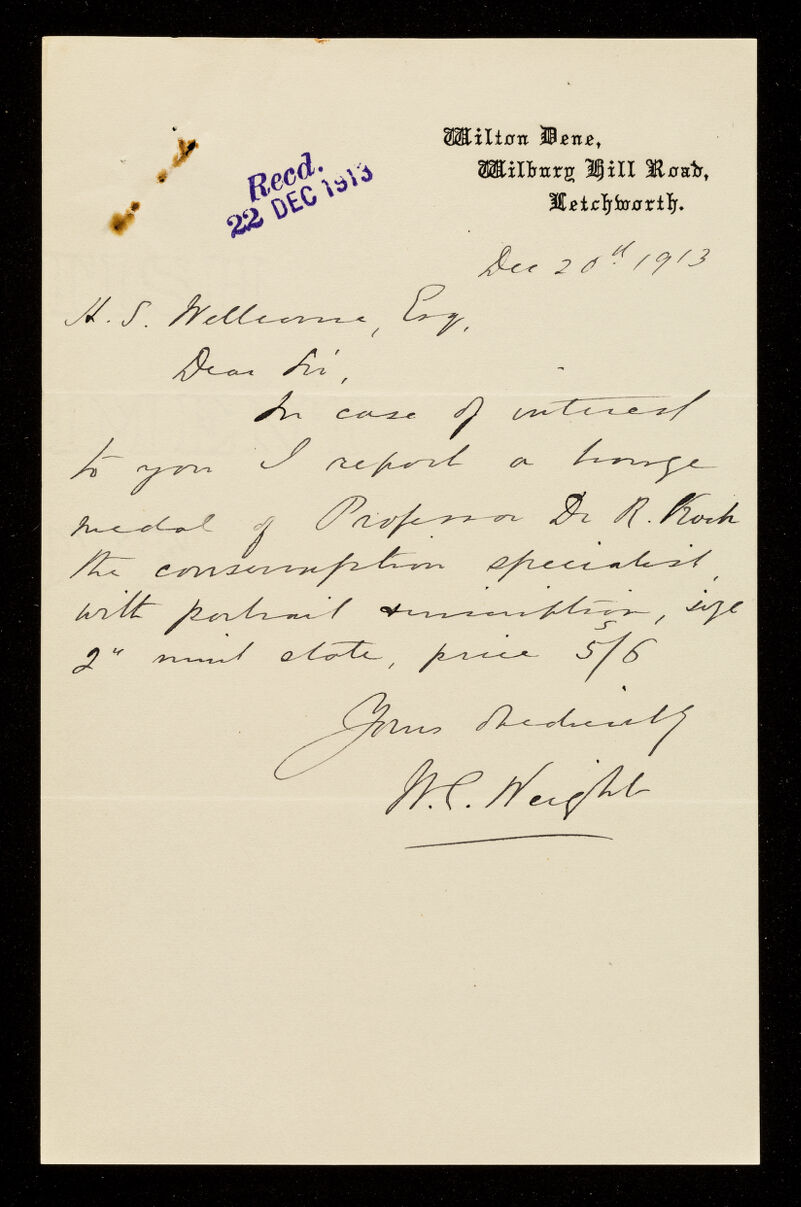 Wilton Dene,
Wilbury Hill Road,
Letchworth.
Recd.
22 DEC 1913
Dec 20th 1913
H. S. Wellcome, Esq,
Dear Sir,
In case of interest
to you I report a bronze
medal of Professor Dr R. Koch
the consumption specialist,
with portrait & inscription, size
2" mint state, price 5/6
Yours obediently
W. C. Weight